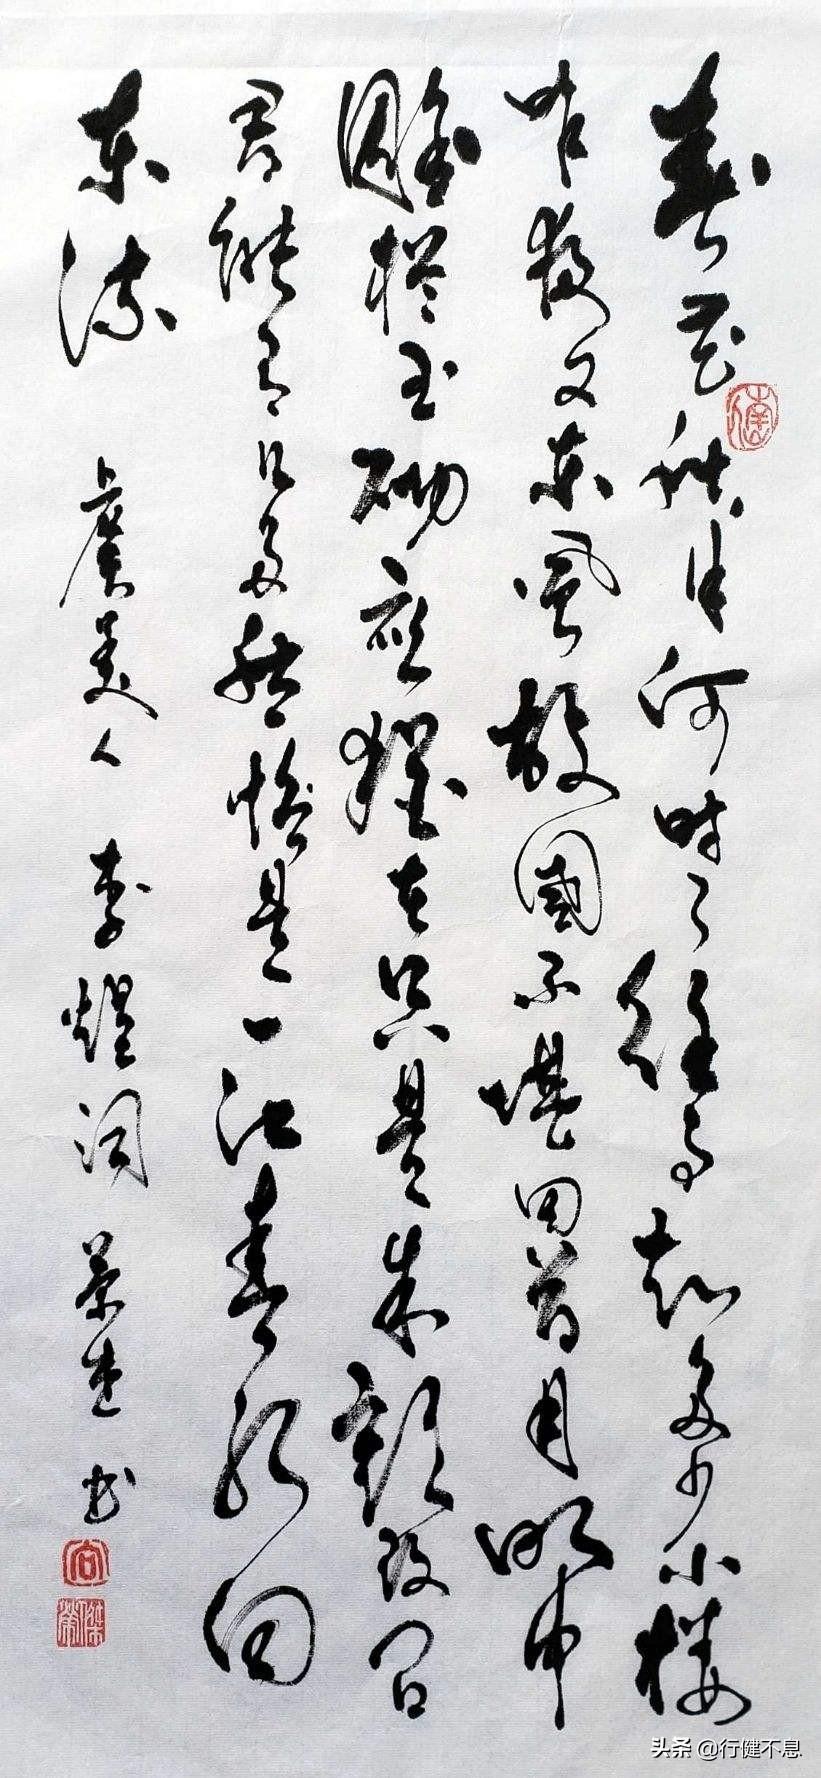 春花秋月何時了往事知多少小楼
昨夜又东風故國不堪回首月明中
雕栏玉砌應猶在只是朱顔改问
君能有几多愁恰是一江春水向
东流 虞美人 李煜词 荣杰书
向
傑榮
头条 @行健不息